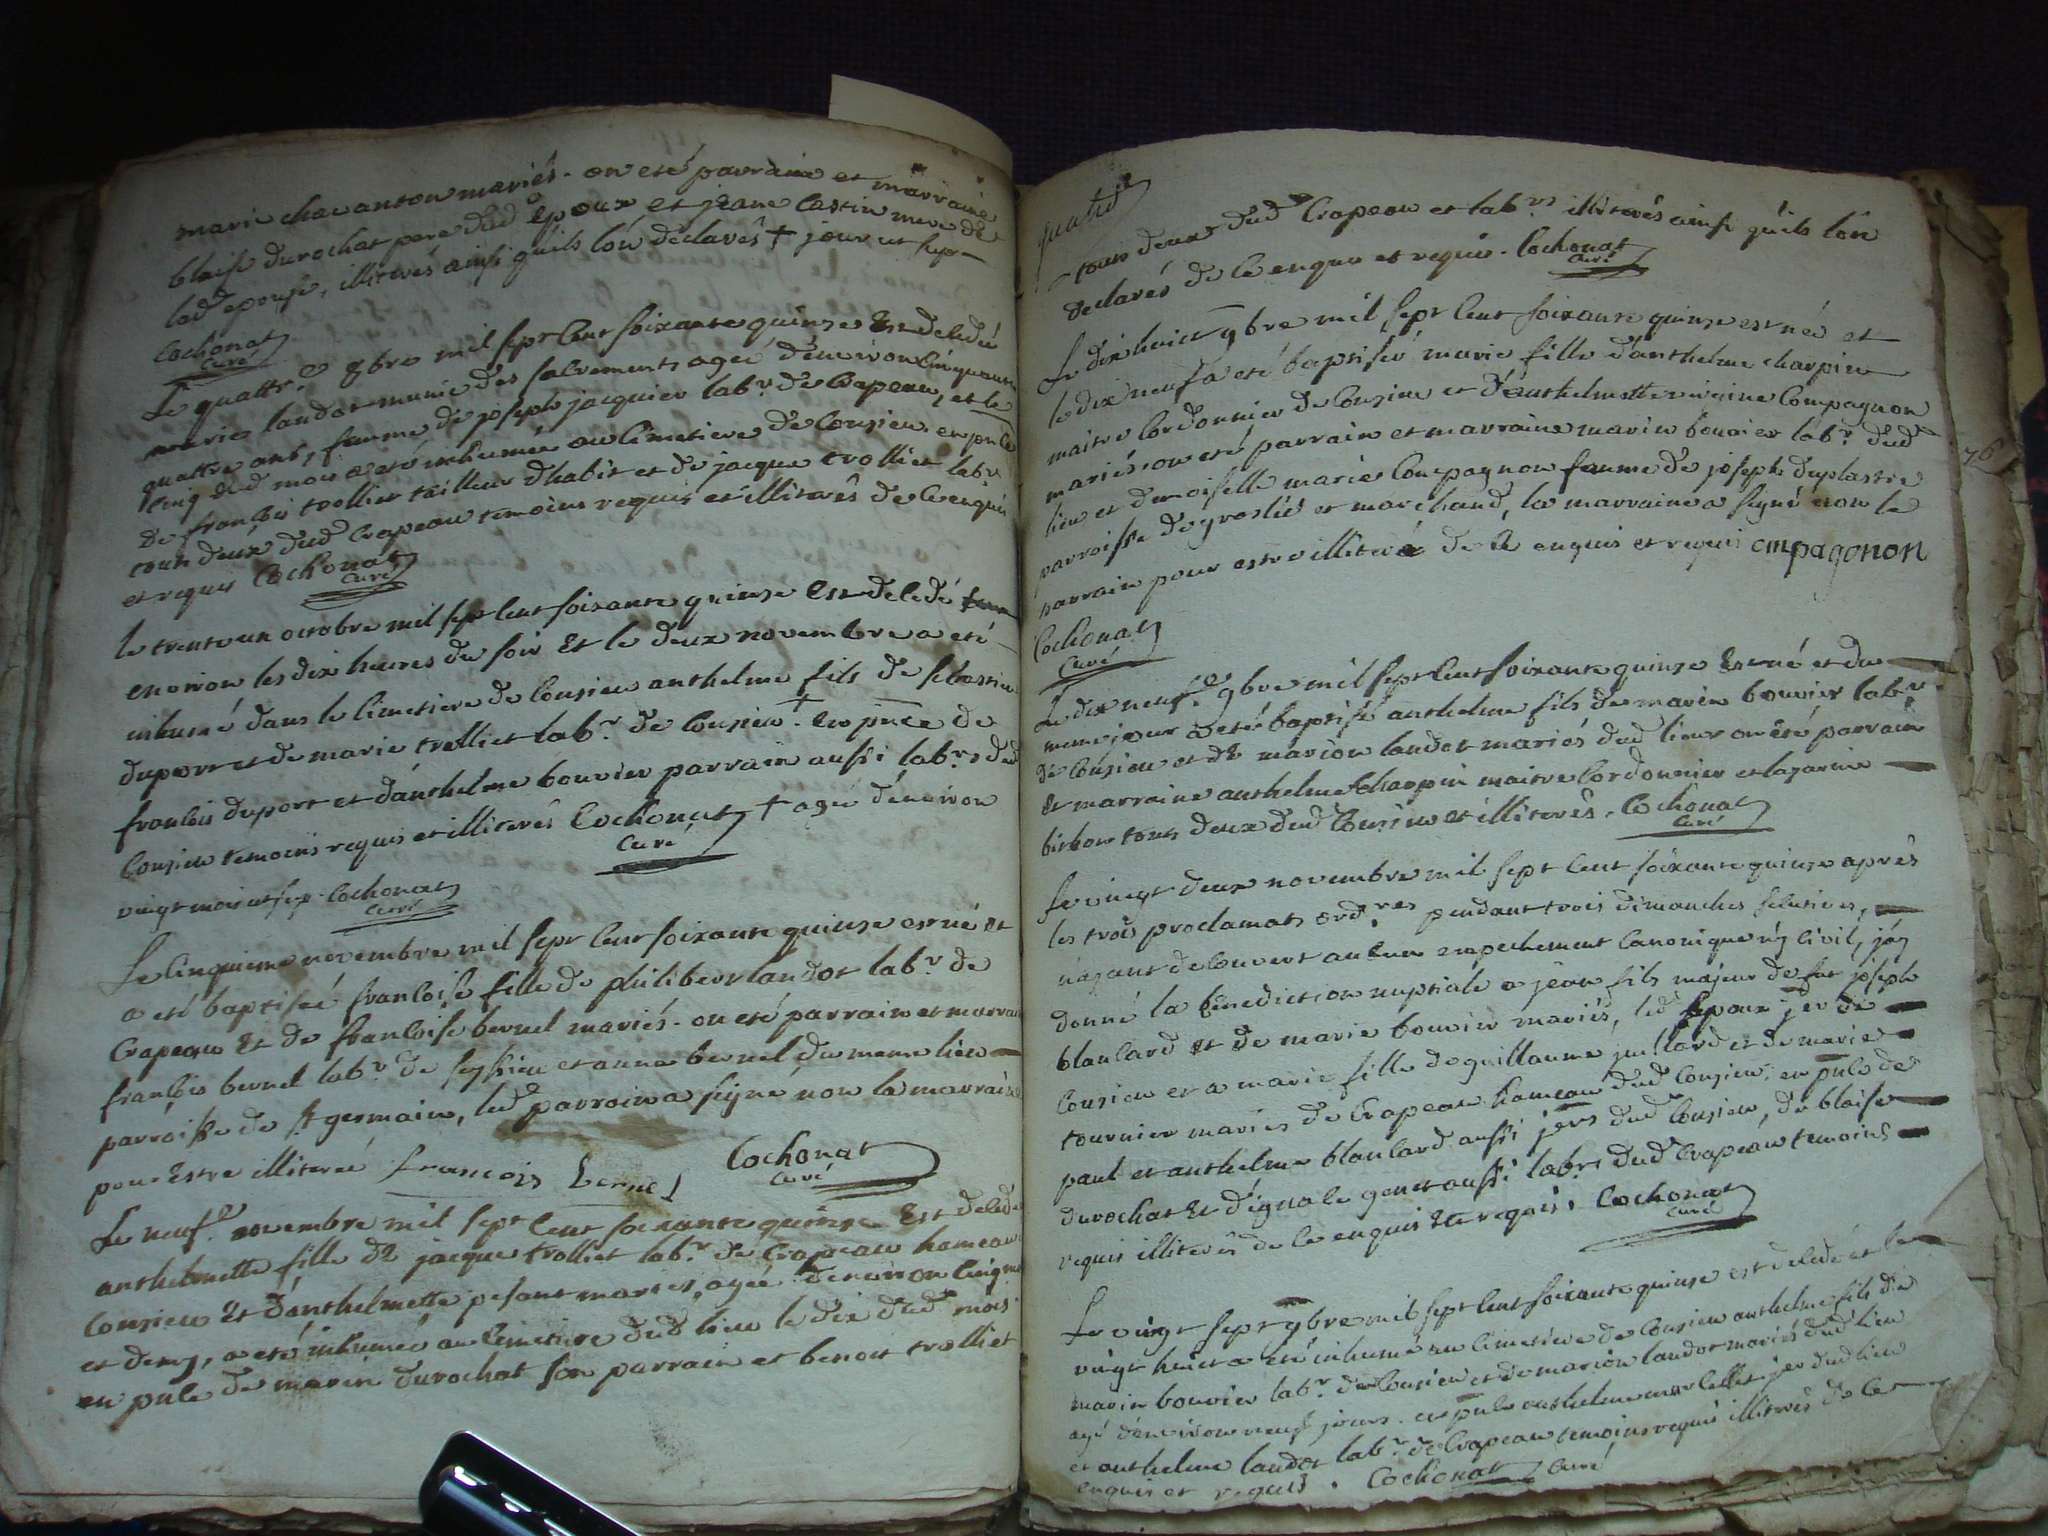 marie chavanton mariés. on eté parrain et marraine
blaise durochat pere dud epoux et jeane Castin mere de
lad epouse, illiterés ainsi quils lon déclarés + jour ut sup
Cochonat
Curé
Le quattre 9bre mil sept Cent soixante quinze Est deledé
marie landot munie des sacrements ageé d'environ Cinquante
quattre ans, femme de joseph jacquier labr de Crapeau, et le
Cinq dud mois a eté inhumée au Cimetiere de Consieu en pnce
de françois trollier tailleur d'habit et de jacque trolliet labr
tous deux dud Crapeau temoins requis et illiterés de Ce enquis
et requis Cochonat
Curé
le trente un octobre mil sept Cent soixante quinze Est deledé
environ les dix heures du soir Et le deux novembre a eté
inhumé dans le Cimetiere de Consieu anthelme fils de sebastien
duport et de marie trolliet labr de Consieu + En pnce de
françois duport et d'anthelme bouvier parrain aussi labrs dud
Consieu temoins requis et illiterés Cochonat + agé d'environ
Curé
vingt mois ut sup. Cochonat
Curé
Le Cinquieme novembre mil sept Cent soixante quinze est né Et
a eté baptiseé francoise fille de philibert landot labr de
Crapeau Et de francoise bernel mariés. on eté parrain et marraine
françois bernel labr de seyssieu et anne bernel du meme lieu
parroisse de st germain, led parroin a signé non la marraine
pour Estre illiterée francois bernel Cochonat
Curé
Le neufe novembre mil sept Cent soixante quinze Est deledé
anthelmette fille de jacque trolliet labr de Crapeau hameau
Consieu Et d'anthelmette pesant mariés, ageé denviron Cinq
et demy, a eté inhumée au Cimetiere dud lieu le dix dud mois
en pnce de marin durochat son parrain et benoit trolliet
tous deux dud Crapeau et labrs illiterés ainsi quils lon
declarés de Ce enquis et requis. Cochonat
Curé
Le dix huict 9bre mil sept Cent soixante quinze est née et
le dix neuf a eté baptiseé marie fille d'anthelme charpin
maitre Cordonnier de Consieu et d'anthelmette Compagnon
mariés on eté parrain et marraine marin bouvier labr dud
lieu et demoiselle marie Compagnon femme de joseph duplastre
parroisse de groslié et marchand, la marraine a signé non le
parrain pour estre illiteré de Ce enquis et requis cmpagonon
Cochonat
Curé
Le dix neufe 9bre mil sept Cent soixante quinze Est né et du
meme jour a eté baptisé anthelme fils de marin bouvier labr
de Consieu et de marion landot mariés dud lieu on eté parrain
Et marraine anthelme Charpin maitre Cordonnier et lazarine
bichon tous deux dud Consieu et illiterés. Cochonat
Curé
Le vingt deux novembre mil sept Cent soixante quinze aprés
les trois proclamats ordres pendant trois dimanches
n'ayant decouvert aucun empechement Canonique ny Civil, j'ay
donné la bénediction nuptiale a jean fils majeur de feu joseph
blanlard et de marie bouvier mariés, led Epoux jer de
Consieu et a marie fille de guillaume juillard et de marie
tournier mariés de Crapeau hameau dud Consieu. en pnce de
paul et anthelme blanlard aussi jers dud Consieu, de blaise
durochat Et d'ignale genet aussi labrs dud Crapeau temoins
requis illiterés de Ce enquis Et requis. Cochonat
Curé
Le vingt sept 9bre mil sept Cent soixante quinze est deledé et le
vingt huict a eté inhumé au Cimetiere de Consieu anthelme fils de
marin bouvier labr de Consieu et de marion landot mariés dud lieu
agé d'environ neuf jours. en pnce anthelme jer dud lieu
et anthelme landot labr de Crapeau temoins requis illiterés de Ce
enquis et requis. Cochonat Curé